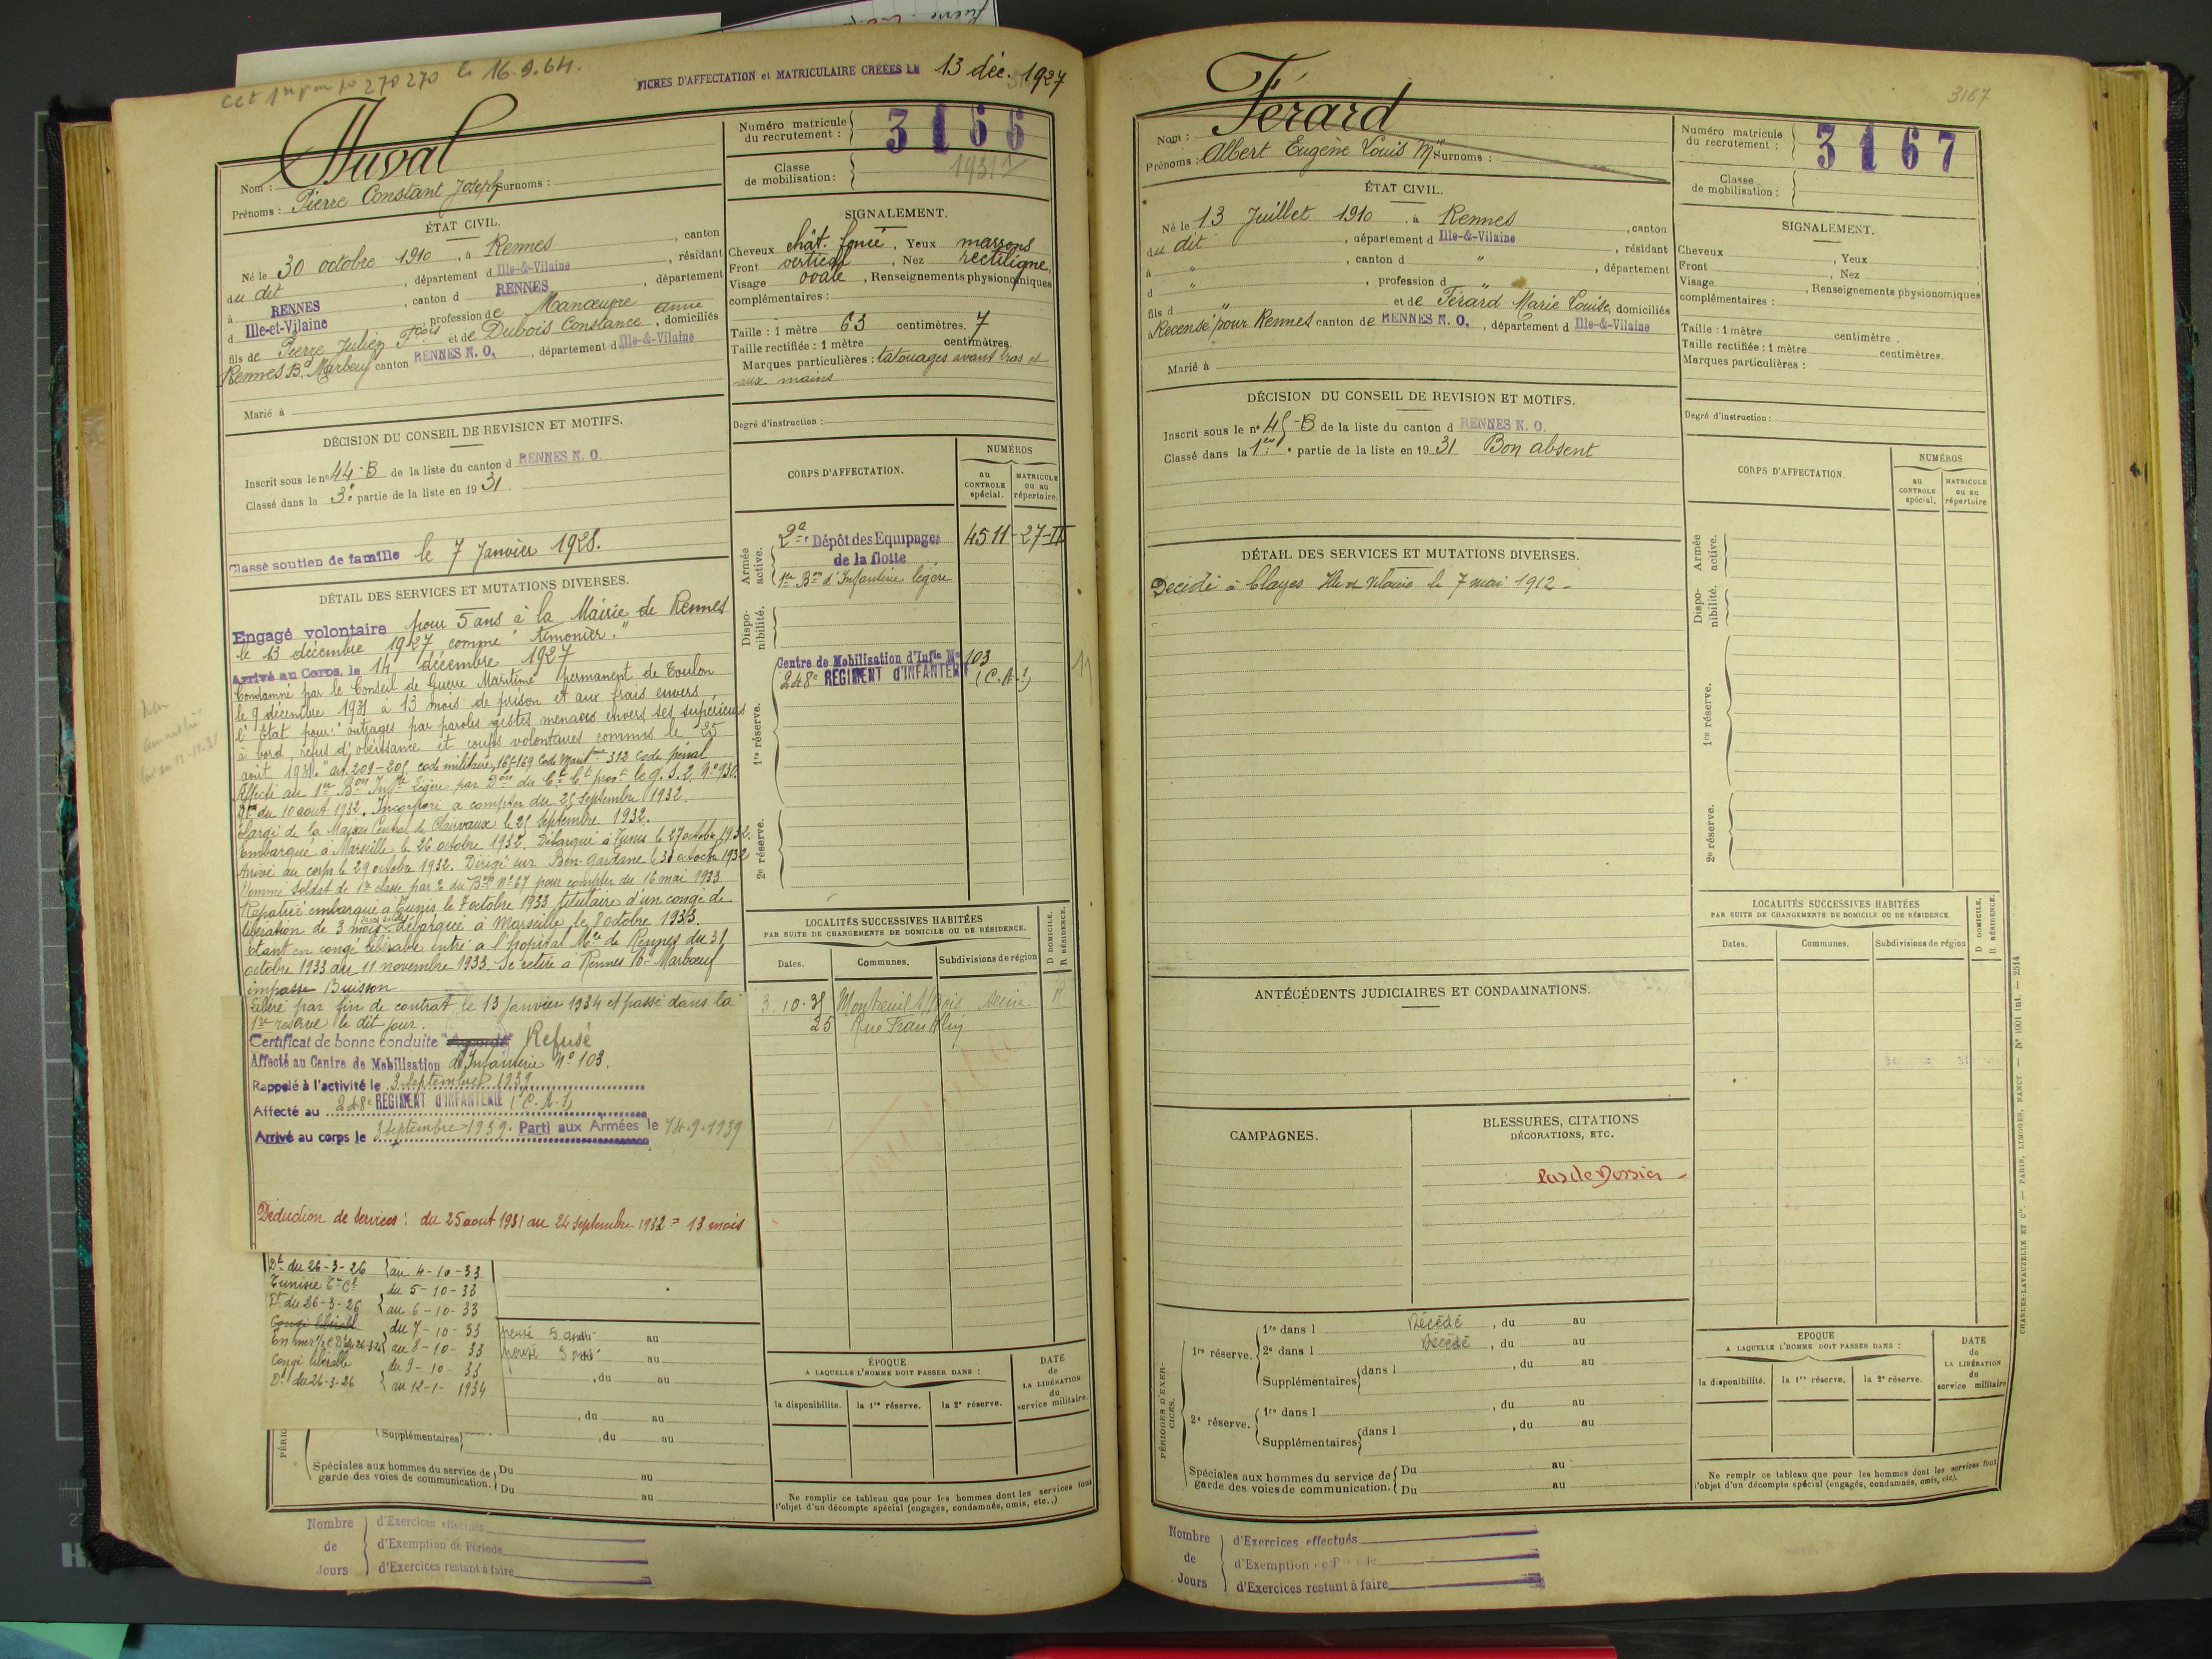 Cct 1 270270 le 16.9.64.
FICHES D'AFFECTATION et MATRICULAIRE CRÉÉES LE 13 déc. 1927
Nom : Duval
Prénoms : Pierre Constant Joseph Surnoms :
Numéro matricule du recrutement : 3166
Classe de mobilisation : 1931
ÉTAT CIVIL.
Né le 30 octobre 1910, à Rennes, canton
du dit, département d Ille-&-Vilaine, résidant
à RENNES, canton d RENNES, département
d Ille-et-Vilaine, profession de Manœuvre
fils de Pierre Julien Fçois et de Dubois Constance Anne, domiciliés
Rennes Bd Marbeuf canton RENNES N. O., département d Ille-&-Vilaine
Marié à
SIGNALEMENT.
Cheveux chât. foncé, Yeux marrons
Front vertical, Nez rectiligne,
Visage ovale, Renseignements physionomiques
complémentaires :
Taille : 1 mètre 63 centimètres. 7
Taille rectifiée : 1 mètre centimètres.
Marques particulières : tatouages avant bras et
aux mains
Degré d'instruction :
DÉCISION DU CONSEIL DE REVISION ET MOTIFS.
Inscrit sous le no 44-B de la liste du canton d RENNES N. O.
Classé dans la 3e partie de la liste en 1931
Classé soutien de famille le 7 Janvier 1928.
DÉTAIL DES SERVICES ET MUTATIONS DIVERSES.
Engagé volontaire pour 5 ans à la Mairie de Rennes
le 13 décembre 1927 comme "timonier."
Arrivé au Corps, le 14 décembre 1927
Condamné par le Conseil de Guerre Maritime permanent de Toulon
le 9 décembre 1931 à 13 mois de prison et aux frais envers
l'État pour: "outrages par paroles gestes menaces envers ses supérieurs
à bord, refus d'obéissance et coups volontaires commis le 25
août 1931." art. 209-205 code militaire, 165-169 Code Marit 312 Code pénal
Affecté au 1er Bon Inf Légère par Don du le g. S. 2 No 930
du 10 aout 1932. Incorporé à compter du 25 Septembre 1932.
Elargi de la Maison Central de Clairvaux le 25 Septembre 1932.
Embarqué à Marseille le 26 octobre 1932. Débarqué à Tunis le 27 octobre 1932.
Arrivé au corps le 29 octobre 1932. Dirigé sur Ben-Gardane le 30 octobre 1932
Nommé Soldat de 1re classe par du Bon No 67 pour compter du 16 mai 1933
Rapatrié embarqué à Tunis le 7 octobre 1933 titulaire d'un congé de
libération de 3 mois sans solde débarqué à Marseille le 8 octobre 1933.
Etant en congé libérable entré à l'hopital Mre de Rennes du 31
octobre 1933 au 11 novembre 1933. Se retire à Rennes Bd Marbœuf
impasse Buisson
Libéré par fin de contrat le 13 Janvier 1934 et passé dans la
1re réserve le dit jour.
Certificat de bonne conduite "Accordé" Refusé
Affecté au Centre de Mobilisation d'Infanterie No 103.
Rappelé à l'activité le 3 Septembre 1939
Affecté au 248e REGIMENT d'INFANTERIE (C.A.1)
Arrivé au corps le 3 Septembre 1939. Parti aux Armées le 14.9.1939
Déduction de services : du 25 aout 1931 au 24 Septembre 1932 = 13 mois
Dt du 26-3-26 au 4-10-33
Tunisie du 5-10-33
Dt du 26-3-26 au 6-10-33
Congé libérabl du 7-10-33
En mer au 8-10-33
Congé libérable du 9-10-33
Dt du 26-3-26 au 12-1-1934
au
au
, du au
, du au
Supplémentaires , du au
Spéciales aux hommes du service de garde des voies de communication. Du au
Du au
CORPS D'AFFECTATION.
NUMÉROS
au CONTROLE spécial.
MATRICULE ou au répertoire.
Armée active.
2e Dépôt des Equipages de la flotte 4511-27-II
1er Bon d'Infanterie légère
Disponibilité.
1re réserve.
Centre de Mobilisation d'Infie No 103
248e REGIMENT d'INFANTERIE (C.A.1)
11
2e réserve.
LOCALITÉS SUCCESSIVES HABITÉES
PAR SUITE DE CHANGEMENTS DE DOMICILE OU DE RÉSIDENCE.
D DOMICILE.
R RÉSIDENCE.
Dates. Communes. Subdivisions de région
3.10.35 Montreuil s/ Bois Seine R
25 Rue Franklin
ÉPOQUE
A LAQUELLE L'HOMME DOIT PASSER DANS :
la disponibilité. la 1re réserve. la 2e réserve.
DATE de LA LIBÉRATION du service militaire.
Ne remplir ce tableau que pour les hommes dont les services font
l'objet d'un décompte spécial (engagés, condamnés, omis, etc..)
Nombre de Jours
d'Exercices effectués
d'Exemption de Période
d'Exercices restant à faire
3167
Nom : Férard
Prénoms : Albert Eugène Louis Mie Surnoms :
Numéro matricule du recrutement : 3167
Classe de mobilisation :
ÉTAT CIVIL.
Né le 13 Juillet 1910, à Rennes, canton
du dit, département d Ille-&-Vilaine, résidant
à ", canton d ", département
d ", profession d "
fils d " et de Férard Marie Louise, domiciliés
Recensé pour Rennes canton de RENNES N. O., département d Ille-&-Vilaine
Marié à
SIGNALEMENT.
Cheveux , Yeux
Front , Nez
Visage , Renseignements physionomiques
complémentaires :
Taille : 1 mètre centimètre.
Taille rectifiée : 1 mètre centimètres.
Marques particulières :
Degré d'instruction :
DÉCISION DU CONSEIL DE REVISION ET MOTIFS.
Inscrit sous le no 45-B de la liste du canton d RENNES N. O.
Classé dans la 1re partie de la liste en 1931 Bon absent
DÉTAIL DES SERVICES ET MUTATIONS DIVERSES.
Décédé à Clayes Ille et Vilaine le 7 mai 1912 -
ANTÉCÉDENTS JUDICIAIRES ET CONDAMNATIONS.
CAMPAGNES.
BLESSURES, CITATIONS
DÉCORATIONS, ETC.
Pas de Dossier -
PÉRIODES D'EXERCICES.
1re réserve. 1re dans l Décédé , du au
2e dans l Décédé , du au
Supplémentaires dans l , du au
2e réserve. 1re dans l , du au
Supplémentaires dans l , du au
Spéciales aux hommes du service de garde des voies de communication. Du au
Du au
CORPS D'AFFECTATION.
NUMÉROS
au CONTROLE spécial.
MATRICULE ou au répertoire
Armée active.
Disponibilité.
1re réserve.
2e réserve.
LOCALITÉS SUCCESSIVES HABITÉES
PAR SUITE DE CHANGEMENTS DE DOMICILE OU DE RÉSIDENCE.
D DOMICILE.
R RÉSIDENCE.
Dates. Communes. Subdivisions de région
EPOQUE
A LAQUELLE L'HOMME DOIT PASSER DANS :
la disponibilité. la 1re réserve. la 2e réserve.
DATE de LA LIBÉRATION du service militaire
Ne remplir ce tableau que pour les hommes dont les services font
l'objet d'un décompte spécial (engagés, condamnés, omis, etc).
CHARLES-LAVAUZELLE ET Cie. — PARIS, LIMOGES, NANCY — No 1001 int. — 2514
Nombre de Jours
d'Exercices effectués
d'Exemption
d'Exercices restant à faire